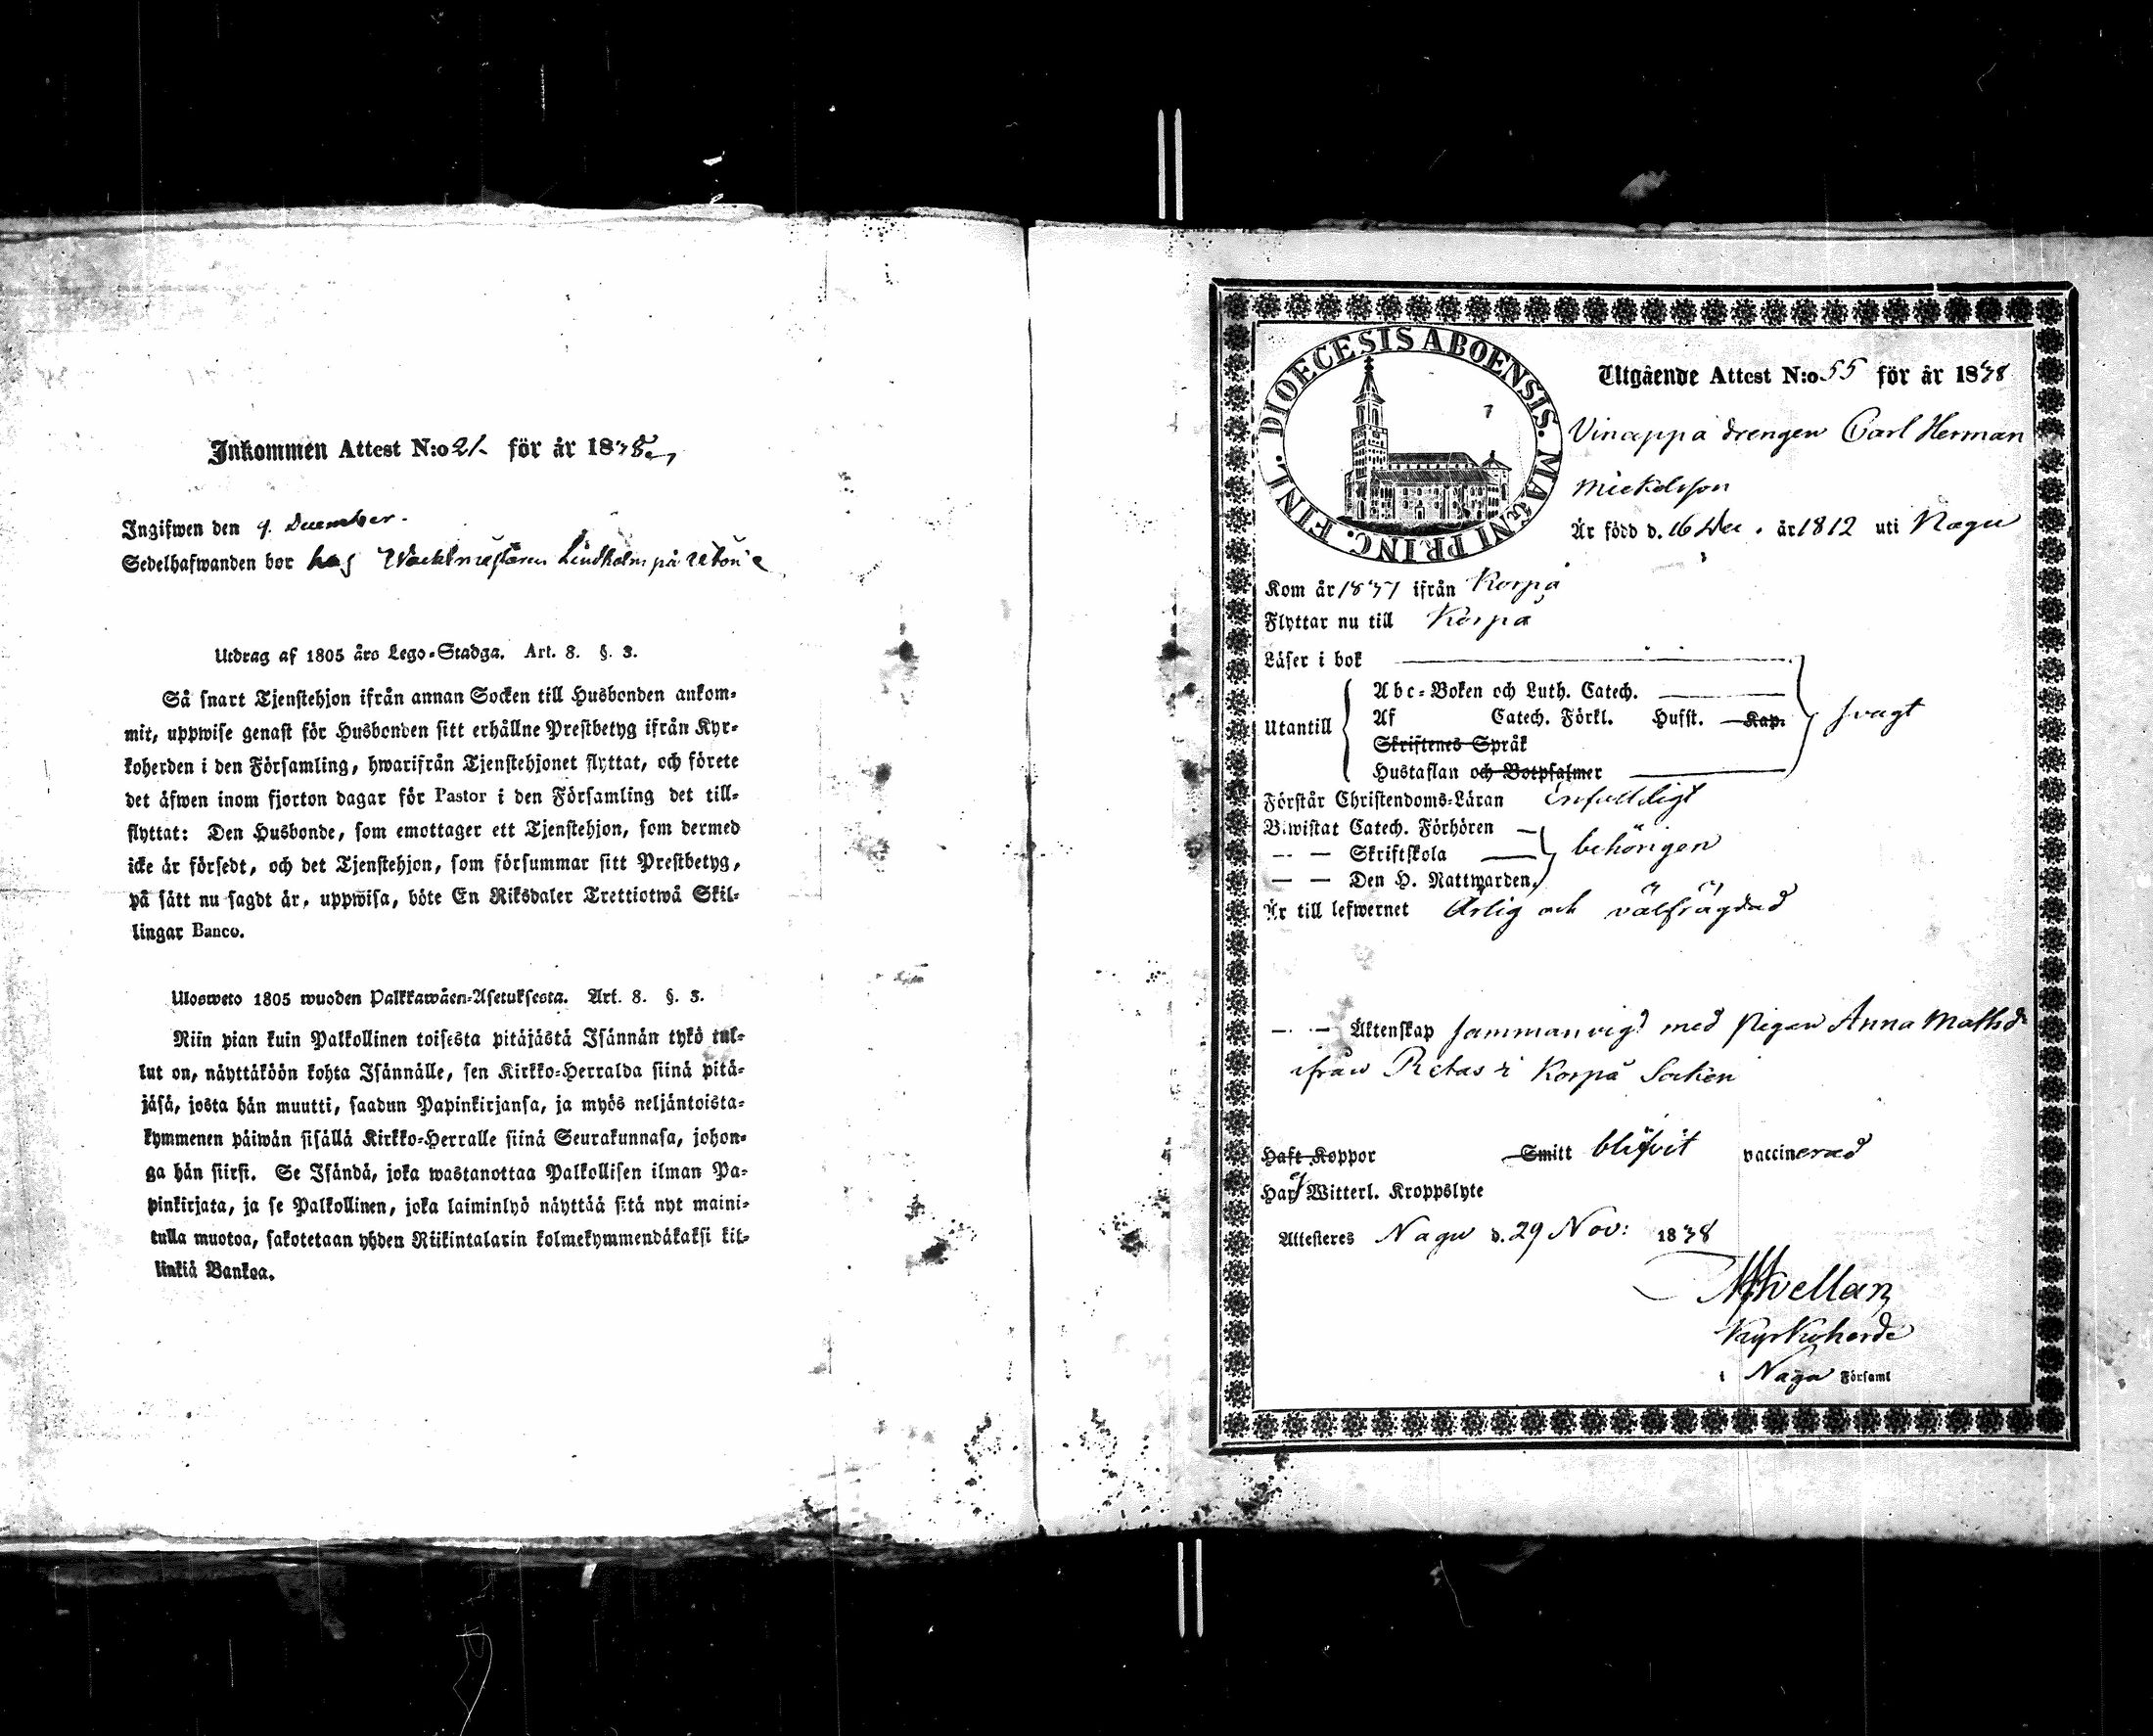 Inkommen Attest N:o 21. för år 1838.
Ingifwen den 9. December.
Sedelhafwanden bor hos Wacktmästaren Lindholm på Utön
Utdrag af 1805 års Lego-Stadga. Art. 8. §. 3.
Så snart Tjenstehjon ifrån annan Socken till Husbonden ankom-
mit, uppwise genast för Husbonden sitt erhållne Prestbetyg ifrån Kyr-
koherden i den Församling, hwarifrån Tjenstehjonet flyttat, och förete
det äfwen inom fjorton dagar för Pastor i den Församling det till-
flyttat: Den Husbonde, som emottager ett Tjenstehjon, som dermed
icke är försedt, och det Tjenstehjon, som försummar sitt Prestbetyg,
på sätt nu sagdt är, uppwisa, böte En Riksdaler Trettiotwå Skil-
lingar Banco.
Ulosweto 1805 wuoden Palkkawäen-Asetuksesta. Art. 8. §. 3.
Niin pian kuin Palkollinen toisesta pitäjästä Isännän tykö tul-
lut on, näyttäköön kohta Isännälle, sen Kirkko-Herralda siinä pitä-
jäsä, josta hän muutti, saadun Papinkirjansa, ja myös neljäntoista-
kymmenen päiwän sisällä Kirkko-Herralle siinä Seurakunnasa, johon-
ga hän siirsi. Se Isändä, joka wastanottaa Palkollisen ilman Pa-
pinkirjata, ja se Palkollinen, joka laiminlyö näyttää sitä nyt maini-
tulla muotoa, sakotetaan yhden Riikintalarin kolmekymmendäkaksi kil-
linkiä Bankoa.
DIOECESIS ABOENSIS. MAGNI PRINC. FINL.
Utgående Attest N:o 55 för år 1838
drengen Carl Herman
Mickelsson
Är född d. 16 Dec. år 1812 uti Nagu
Kom år 1837 ifrån Korpå
Flyttar nu till Korpå
Läser i bok
Abc-Boken och Luth. Catech.
Utantill Af Catech. Förkl. Hufst. Kap. svagt
Skriftenes Språk
Hustaflan och Botpsalmer
Förstår Christendoms-Läran Enfaldeligt
Biwistat Catech. Förhören
— — Skriftskola behörigen
— — Den H. Nattwarden.
Är till lefwernet Ärlig och välfrägdad
— — Äktenskap sammanvigd med pigan Anna Mattsd
ifrån Retais i Korpå Socken
Haft Koppor Smitt blifvit vaccinerad
Har ej Witterl. Kroppslyte
Attesteres Nagu d. 29 Nov: 1838
Kyrkoherde
i Nagu Församl